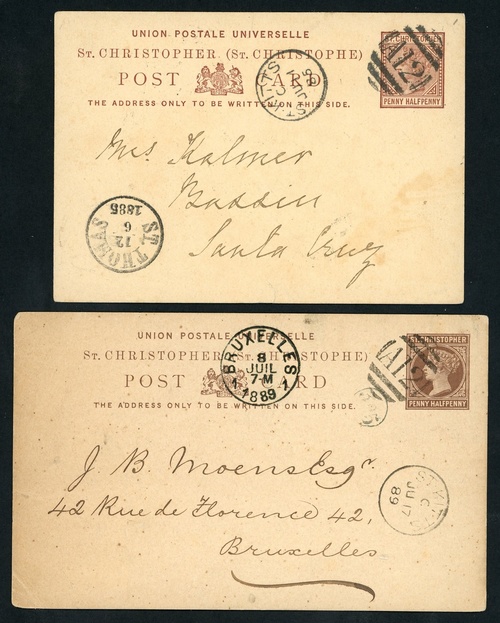 UNION POSTALE UNIVERSELLE
ST. CHRISTOPHER (ST. CHRISTOPHE)
POST CARD
THE ADDRESS ONLY TO BE WRITTEN ON THIS SIDE.
ST. CHRISTOPHER
PENNY HALFPENNY
A12
ST. KITTS
C
85
Mrs. Kalmer
Bassin
Santa Cruz
ST THOMAS
12
6
1885
UNION POSTALE UNIVERSELLE
ST. CHRISTOPHER (ST. CHRISTOPHE)
POST CARD
THE ADDRESS ONLY TO BE WRITTEN ON THIS SIDE.
ST. CHRISTOPHER
PENNY HALFPENNY
A12
BRUXELLES
8
JUIL
7-M
1 1889 1
J. B. Moens Esqr.
42 Rue de Florence 42,
Bruxelles
ST. KITTS
C
JU 17
89